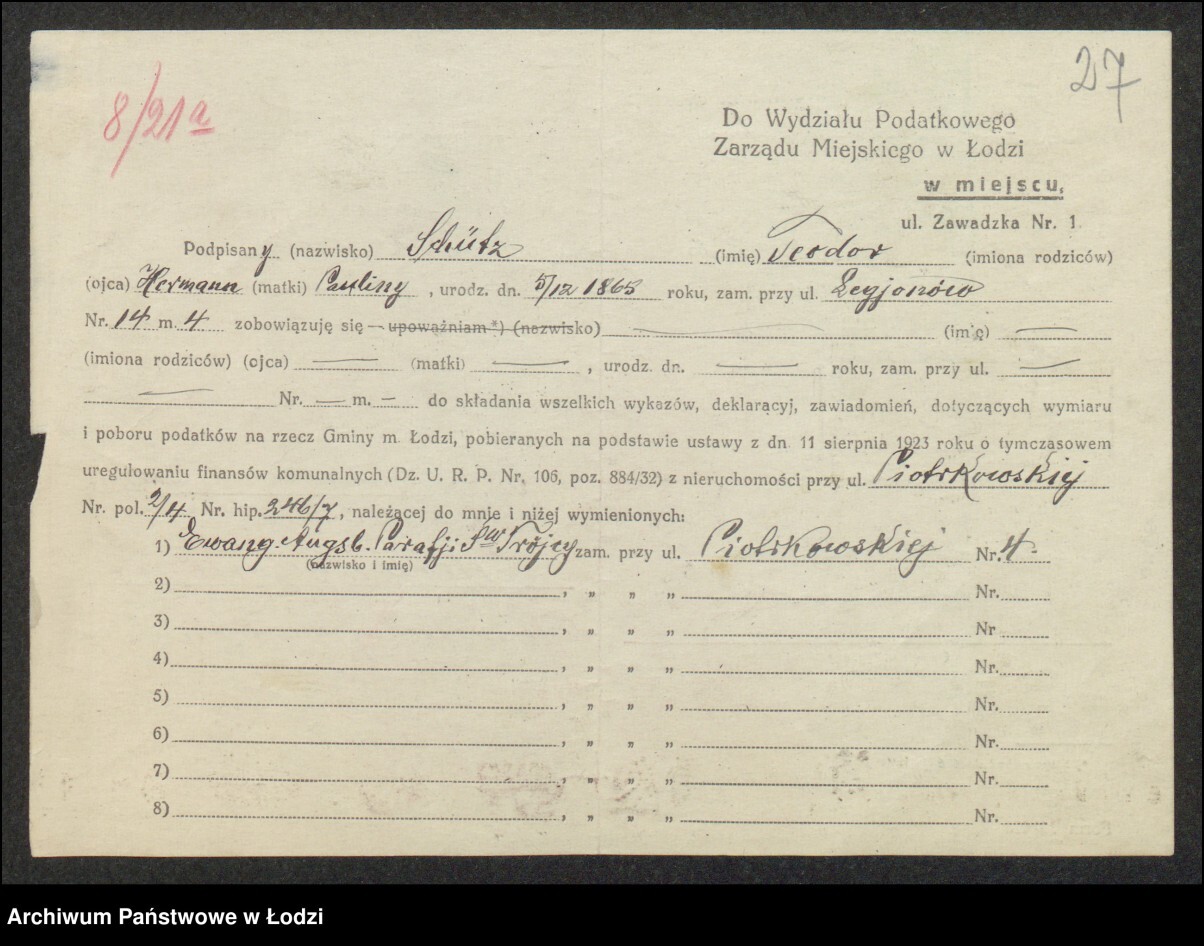 27
8/21a
Do Wydziału Podatkowego
Zarządu Miejskiego w Łodzi
w miejscu,
ul. Zawadzka Nr. 1.
Podpisany (nazwisko) Schütz (imię) Teodor (imiona rodziców)
(ojca) Hermann (matki) Pauliny, urodz. dn. 5/12 1865 roku, zam. przy ul. Legjonów
Nr. 14 m. 4 zobowiązuję się — upoważniam *) (nazwisko) — (imię) —
(imiona rodziców) (ojca) — (matki) —, urodz. dn. — roku, zam. przy ul. —
— Nr. — m. — do składania wszelkich wykazów, deklaracyj, zawiadomień, dotyczących wymiaru
i poboru podatków na rzecz Gminy m. Łodzi, pobieranych na podstawie ustawy z dn. 11 sierpnia 1923 roku o tymczasowem
uregulowaniu finansów komunalnych (Dz. U. R. P. Nr. 106, poz. 884/32) z nieruchomości przy ul. Piotrkowskiej
Nr. pol. 2/4 Nr. hip. 246/7, należącej do mnie i niżej wymienionych:
1) Ewang. Augsb. Parafji Św Trójcy zam. przy ul. Piotrkowskiej Nr. 4.
(nazwisko i imię)
2) , „ „ „ Nr.
3) , „ „ „ Nr
4) , „ „ „ Nr.
5) , „ „ „ Nr.
6) , „ „ „ Nr.
7) , „ „ „ Nr.
8) , „ „ „ Nr.
Archiwum Państwowe w Łodzi